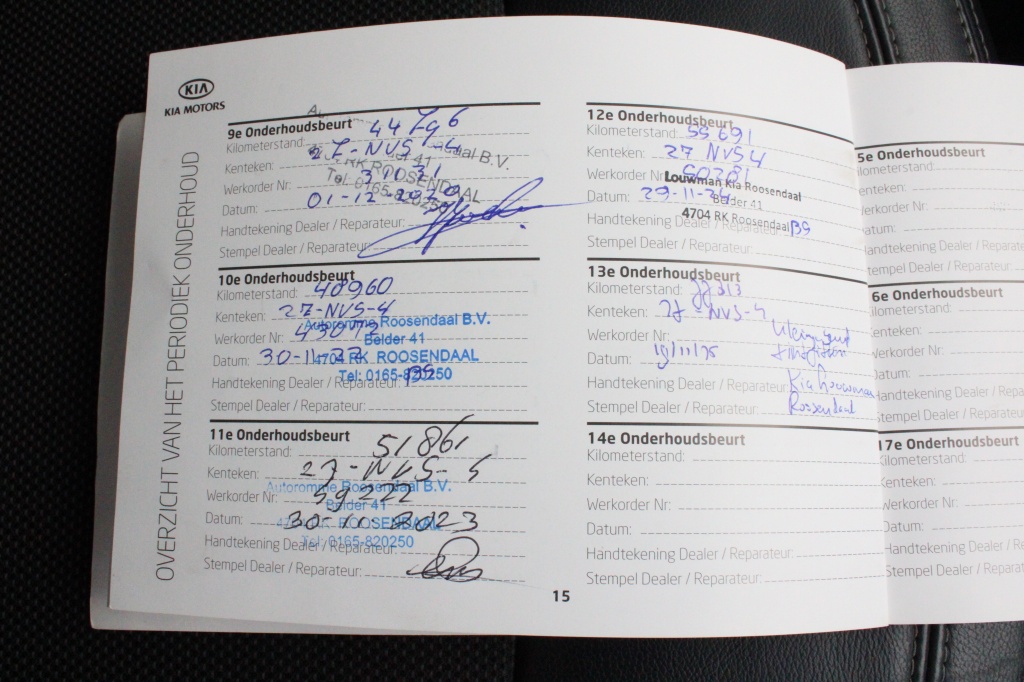 KIA
KIA MOTORS
OVERZICHT VAN HET PERIODIEK ONDERHOUD
9e Onderhoudsbeurt
Kilometerstand:
Kenteken: 27-NVS-4
Werkorder Nr:
Datum: 01-12-
Handtekening Dealer / Reparateur:
Stempel Dealer / Reparateur:
RK ROOSENDAAL
Tel. 0165-820250
10e Onderhoudsbeurt
Kilometerstand: 48960
Kenteken: 27-NVS-4
Werkorder Nr:
Datum: 30-11-22
Handtekening Dealer / Reparateur:
Stempel Dealer / Reparateur:
Autoromme Roosendaal B.V.
Belder 41
4704 RK ROOSENDAAL
Tel: 0165-820250
11e Onderhoudsbeurt
Kilometerstand: 51861
Kenteken: 27-NVS-
Werkorder Nr: 59222
Datum: 30-11-2023
Handtekening Dealer / Reparateur:
Stempel Dealer / Reparateur:
Autoromme Roosendaal B.V.
Belder 41
ROOSENDAAL
Tel: 0165-820250
12e Onderhoudsbeurt
Kilometerstand: 55691
Kenteken: 27 NVS4
Werkorder Nr: 60281
Datum: 29-11-24
Handtekening Dealer / Reparateur:
Stempel Dealer / Reparateur:
Louwman Kia Roosendaal
Belder 41
4704 RK Roosendaal
13e Onderhoudsbeurt
Kilometerstand:
Kenteken: 27-NVS-4
Werkorder Nr:
Datum: 19/11/25
Handtekening Dealer / Reparateur: Kia Louwman
Stempel Dealer / Reparateur: Roosendaal
14e Onderhoudsbeurt
Kilometerstand:
Kenteken:
Werkorder Nr:
Datum:
Handtekening Dealer / Reparateur:
Stempel Dealer / Reparateur:
15
5e Onderhoudsbeurt
Kilometerstand:
enteken:
Werkorder Nr:
atum:
andtekening Dealer / Reparateur
tempel Dealer / Reparateur:
6e Onderhoudsbeurt
ilometerstand:
enteken:
Werkorder Nr:
Datum:
Handtekening Dealer / Reparate
Stempel Dealer / Reparateur:
17e Onderhoudsbeurt
Kilometerstand:
Kenteken:
Werkorder Nr:
Datum:
Handtekening Dealer / Repara
Stempel Dealer / Reparateur: